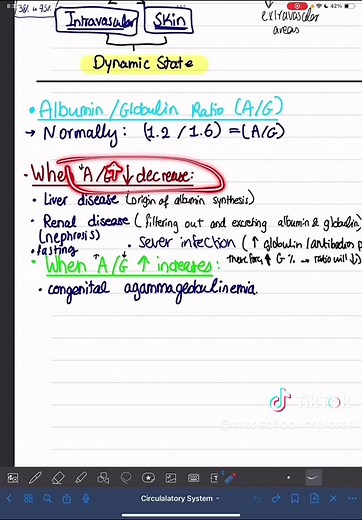 38% in 75%
Intravascular
Skin
extravascular
areas
Dynamic State
• Albumin/Globulin Ratio (A/G)
→ Normally: (1.2 / 1.6) = (A/G)
• When ↓A/G↑ ↓ decrease:
• Liver disease (origin of albumin synthesis)
• Renal disease (filtering out and excreting albumin & globulin)
(nephrosis)
• fasting
• Sever infection (↑ globulin (antibodies
therefore ↑ G % → ratio will ↓)
• When ↑A/G↓ ↑ increases:
• congenital agammaglobulinemia.
TikTok
42%
Circulalatory System